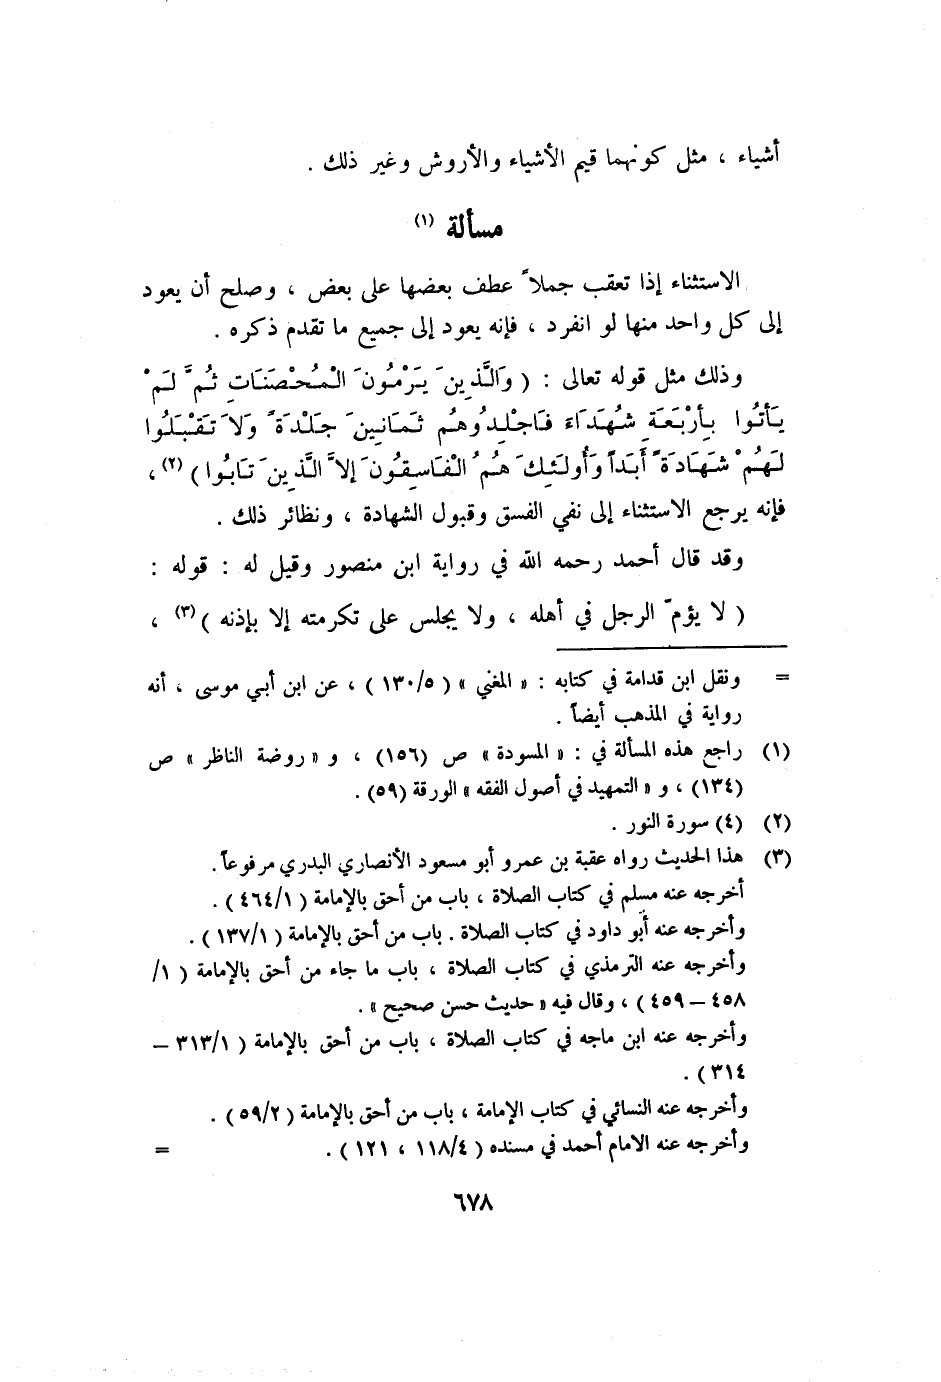 أشياء ، مثل كونهما قيم الأشياء والأروش وغير ذلك .
مسألة (١)
الاستثناء إذا تعقب جملاً عطف بعضها على بعض ، وصلح أن يعود
إلى كل واحد منها لو انفرد ، فإنه يعود إلى جميع ما تقدم ذكره .
وذلك مثل قوله تعالى : ( وَالَّذِينَ يَرْمُونَ الْمُحْصَنَاتِ ثُمَّ لَمْ
يَأتُوا بِأرْبَعَةِ شُهَدَاءَ فَاجْلِدُوهُم ثَمَانِينَ جَلْدَةً وَلاَ تَقْبَلُوا
لَهُمْ شَهَادَةً أَبَداً وَأُولَئِكَ هُمُ الْفَاسِقُونَ إلاَّ الَّذِينَ تَابُوا ) (٢) ،
فإنه يرجع الاستثناء إلى نفي الفسق وقبول الشهادة ، ونظائر ذلك .
وقد قال أحمد رحمه الله في رواية ابن منصور وقيل له : قوله :
( لا يؤمّ الرجل في أهله ، ولا يجلس على تكرمته إلا بإذنه ) (٣) ،
= ونقل ابن قدامة في كتابه : « المغني » ( ١٣٠/٥ ) ، عن ابن أبي موسى ، أنه
رواية في المذهب أيضاً .
(١) راجع هذه المسألة في : « المسودة » ص (١٥٦) ، و « روضة الناظر » ص
(١٣٤) ، و « التمهيد في أصول الفقه » الورقة (٥٩) .
(٢) (٤) سورة النور .
(٣) هذا الحديث رواه عقبة بن عمرو أبو مسعود الأنصاري البدري مرفوعاً .
أخرجه عنه مسلم في كتاب الصلاة ، باب من أحق بالإمامة ( ٤٦٤/١ ) .
وأخرجه عنه أبو داود في كتاب الصلاة . باب من أحق بالإمامة ( ١٣٧/١ ) .
وأخرجه عنه الترمذي في كتاب الصلاة ، باب ما جاء من أحق بالإمامة ( ١/
٤٥٨ – ٤٥٩ ) ، وقال فيه « حديث حسن صحيح » .
وأخرجه عنه ابن ماجه في كتاب الصلاة ، باب من أحق بالإمامة ( ٣١٣/١ –
٣١٤ ) .
وأخرجه عنه النسائي في كتاب الإمامة ، باب من أحق بالإمامة ( ٥٩/٢ ) .
وأخرجه عنه الامام أحمد في مسنده ( ١١٨/٤ ، ١٢١ ) . =
٦٧٨